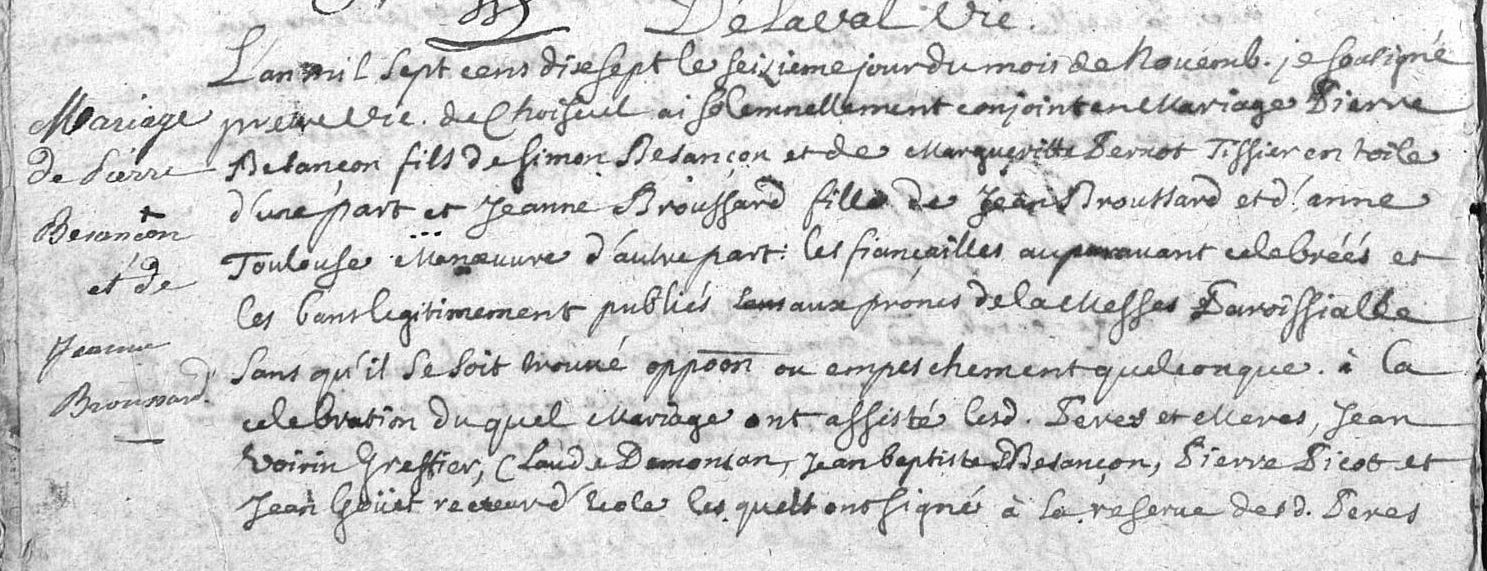 De Laval Vic.
L'an mil sept cens dixsept le seizieme jour du mois de Novemb. je sousigné
pretre vic. de Choiseul ai solemnellement conjoint en Mariage Pierre
Besançon fils de Simon Besançon et de Margueritte Pernot Tissier en toile
d'une part et Jeanne Broussard fille de Jean Broussard et d'anne
Toulouse Manoeuvre d'autre part: les fiançailles auparavant celebréés et
les bans legitimement publiés aux prônes de la Messes Paroissialle
sans qu'il se soit trouué oppoon ou empeschement quelconque. à la
celebration du quel Mariage ont assisté lesd. Peres et Meres, Jean
Voirin Greffier, Claude Demonsan, Jean baptiste Besançon, Pierre Picot et
Jean Goüet recteur d'Ecole les quels ont signé à la reserve desd. Peres
Mariage
de Pierre
Besançon
et de
Jeanne
Broussard.